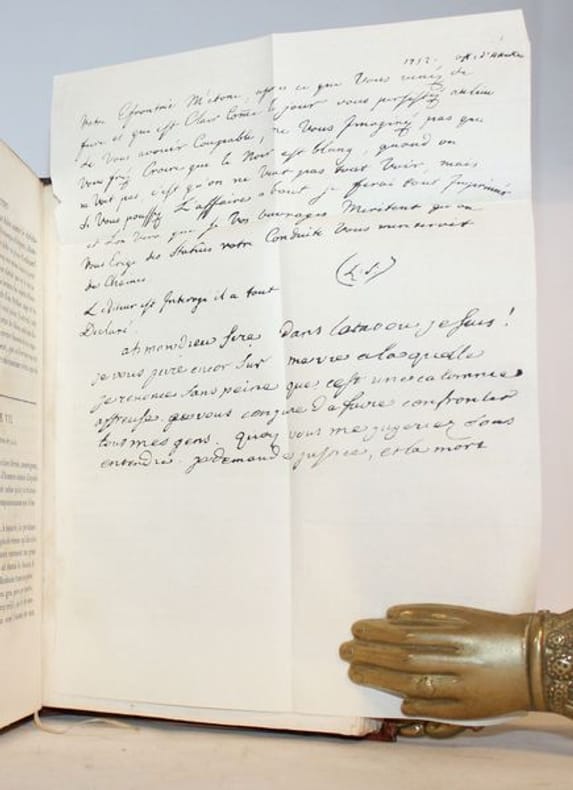 1752.
Votre Efronterie M'étone, apres ce que Vous venéz de
faire et qui est Clair Come le jour vous persistéz au lieu
de Vous avouer Coupable, ne Vous Imaginéz pas que
Vous feréz Croire que le Noir est blang, quand on
ne Voit pas, c'est qu'on ne Veut pas tout Voir, mais
si Vous pousséz L'afffaires a bout je ferai tout Imprimér
et L'on Vera que si Vos ouvrages Méritent qu'on
Vous Erige des Statues votre Conduite Vous meriterait
des Chaines.
L'editeur est Interogé il a tout
Declaré
(L. S.)
ah mon dieu sire dans letat ou je suis!
je vous jure encor sur ma vie a la quelle
je renonce sans peine que cest une calomnie
affreuse. je vous conjure de faire confronter
tous mes gens. quoy vous me jugeriez sans
entendre. je demande justice, et la mort